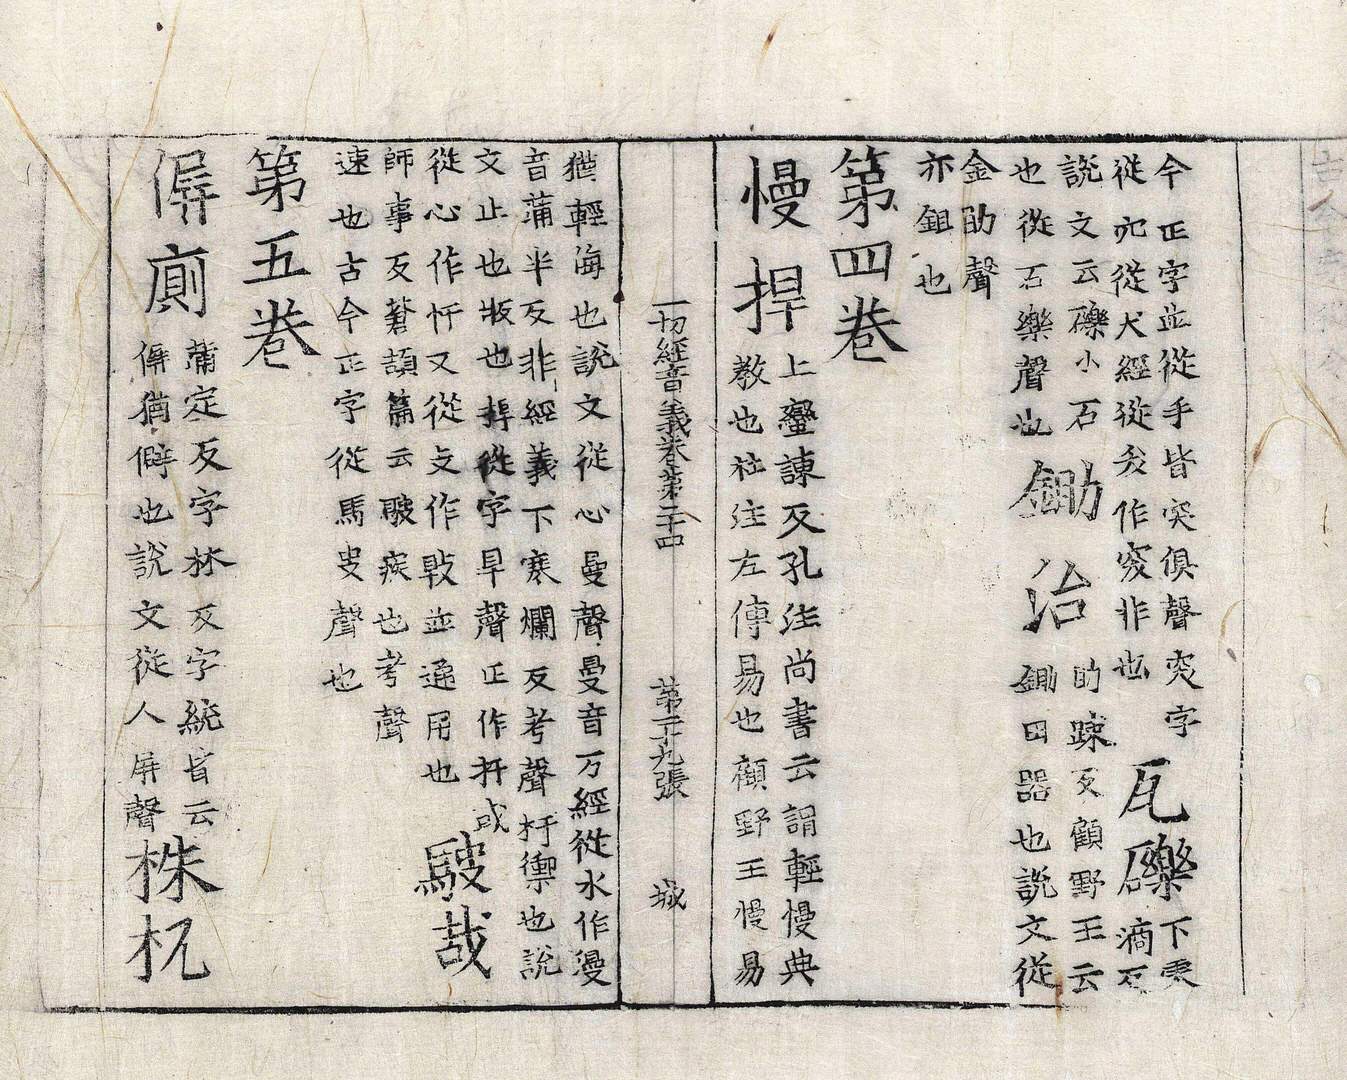 今正字並從手皆突俱聲突字
從穴從犬經從犮作窔非也 瓦礫下零
說文云礫小石 滴反
也從石樂聲也 鋤治助踈反顧野王云
鋤田器也說文從
金助聲
亦鉏也
第四卷
慢捍上蠻諫反孔注尚書云謂輕慢典
教也杜注左傳易也顧野王慢易
一切經音義卷第二十四 第二十九張 城
猶輕侮也說文從心曼聲曼音万經從水作漫
音蒲半反非經義下寒爛反考聲扞禦也說
文止也㧊也捍從字旱聲正作扞或
從心作忓又從攴作戟並通用也 駿哉
師事反蒼頡篇云駿疾也考聲
速也古今正字從馬吏聲也
第五卷
偋廁蒲定反字林及字統皆云
偋猶僻也說文從人屏聲 株杌